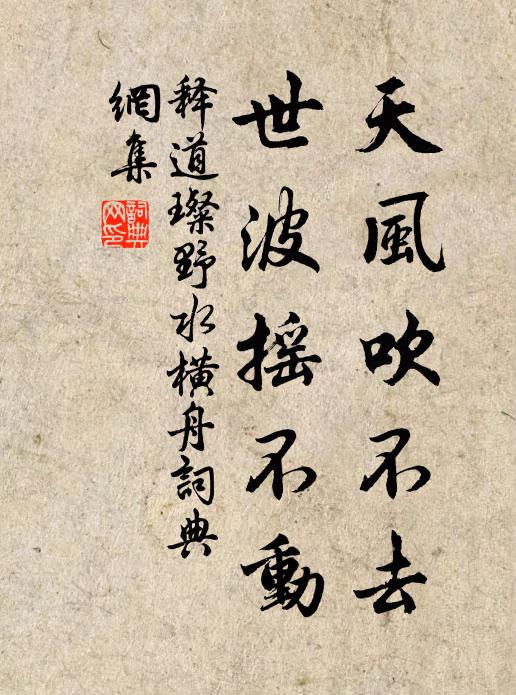 天風吹不去
世波摇不動
释道璨野水橫舟詞典
網集
詞典
网印